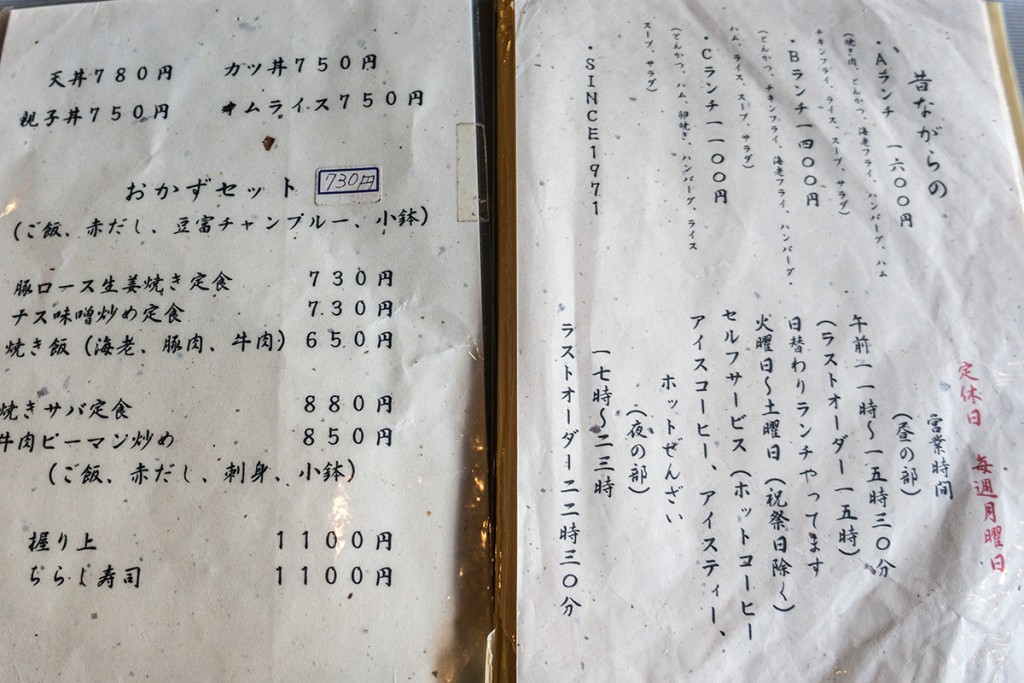 天丼７８０円　カツ丼７５０円
親子丼７５０円　オムライス７５０円
おかずセット　730円
（ご飯、赤だし、豆富チャンプルー、小鉢）
豚ロース生姜焼き定食　７３０円
ナス味噌炒め定食　７３０円
焼き飯（海老、豚肉、牛肉）６５０円
焼きサバ定食　８８０円
牛肉ピーマン炒め　８５０円
（ご飯、赤だし、刺身、小鉢）
握り上　１１００円
ちらし寿司　１１００円
昔ながらの
・Aランチ　一六〇〇円
（焼き肉、とんかつ、海老フライ、ハンバーグ、ハム
チキンフライ、ライス、スープ、サラダ）
・Bランチ　一四〇〇円
（とんかつ、チキンフライ、海老フライ、ハンバーグ
ハム、ライス、スープ、サラダ）
・Cランチ　一一〇〇円
（とんかつ、ハム、卵焼き、ハンバーグ、ライス
スープ、サラダ）
・SINCE1971
定休日　毎週月曜日
営業時間
（昼の部）
午前一一時〜一五時三〇分
（ラストオーダー一五時）
日替わりランチやってます
火曜日〜土曜日（祝祭日除く）
セルフサービス（ホットコーヒー
アイスコーヒー、アイスティー、
ホットぜんざい
（夜の部）
一七時〜二三時
ラストオーダー二二時三〇分